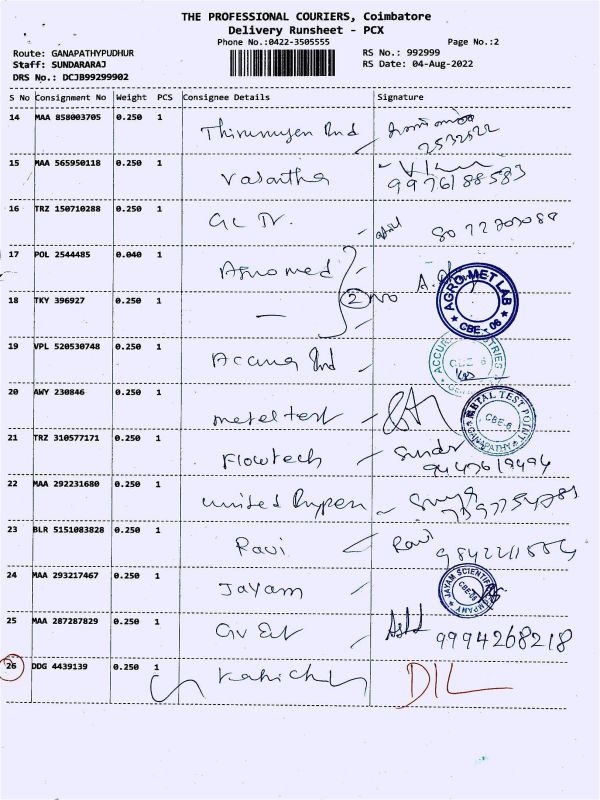 THE PROFESSIONAL COURIERS, Coimbatore
Delivery Runsheet - PCX
Phone No.:0422-3505555
Page No.:2
Route: GANAPATHYPUDHUR
RS No.: 992999
Staff: SUNDARARAJ
RS Date: 04-Aug-2022
DRS No.: DCJB99299902
S No Consignment No Weight PCS Consignee Details Signature
14 MAA 858003705 0.250 1
2532522
15 MAA 565950118 0.250 1 Vasantha
9976188583
16 TRZ 150710288 0.250 1
17 POL 2544485 0.040 1 Agromed
2 NO
AGRO MET LAB
CBE - 06
18 TKY 396927 0.250 1 —
19 VPL 520530748 0.250 1
CBE 6
20 AWY 230846 0.250 1 metal test
METAL TEST POINT
CBE-6
GANAPATHY
21 TRZ 310577171 0.250 1 Flowtech
22 MAA 292231680 0.250 1 United
23 BLR 5151083828 0.250 1 Ravi Ravi
24 MAA 293217467 0.250 1 Jayam
JAYAM SCIENTIFIC COMPANY
25 MAA 287287829 0.250 1
9994268218
26 DDG 4439139 0.250 1 DIL